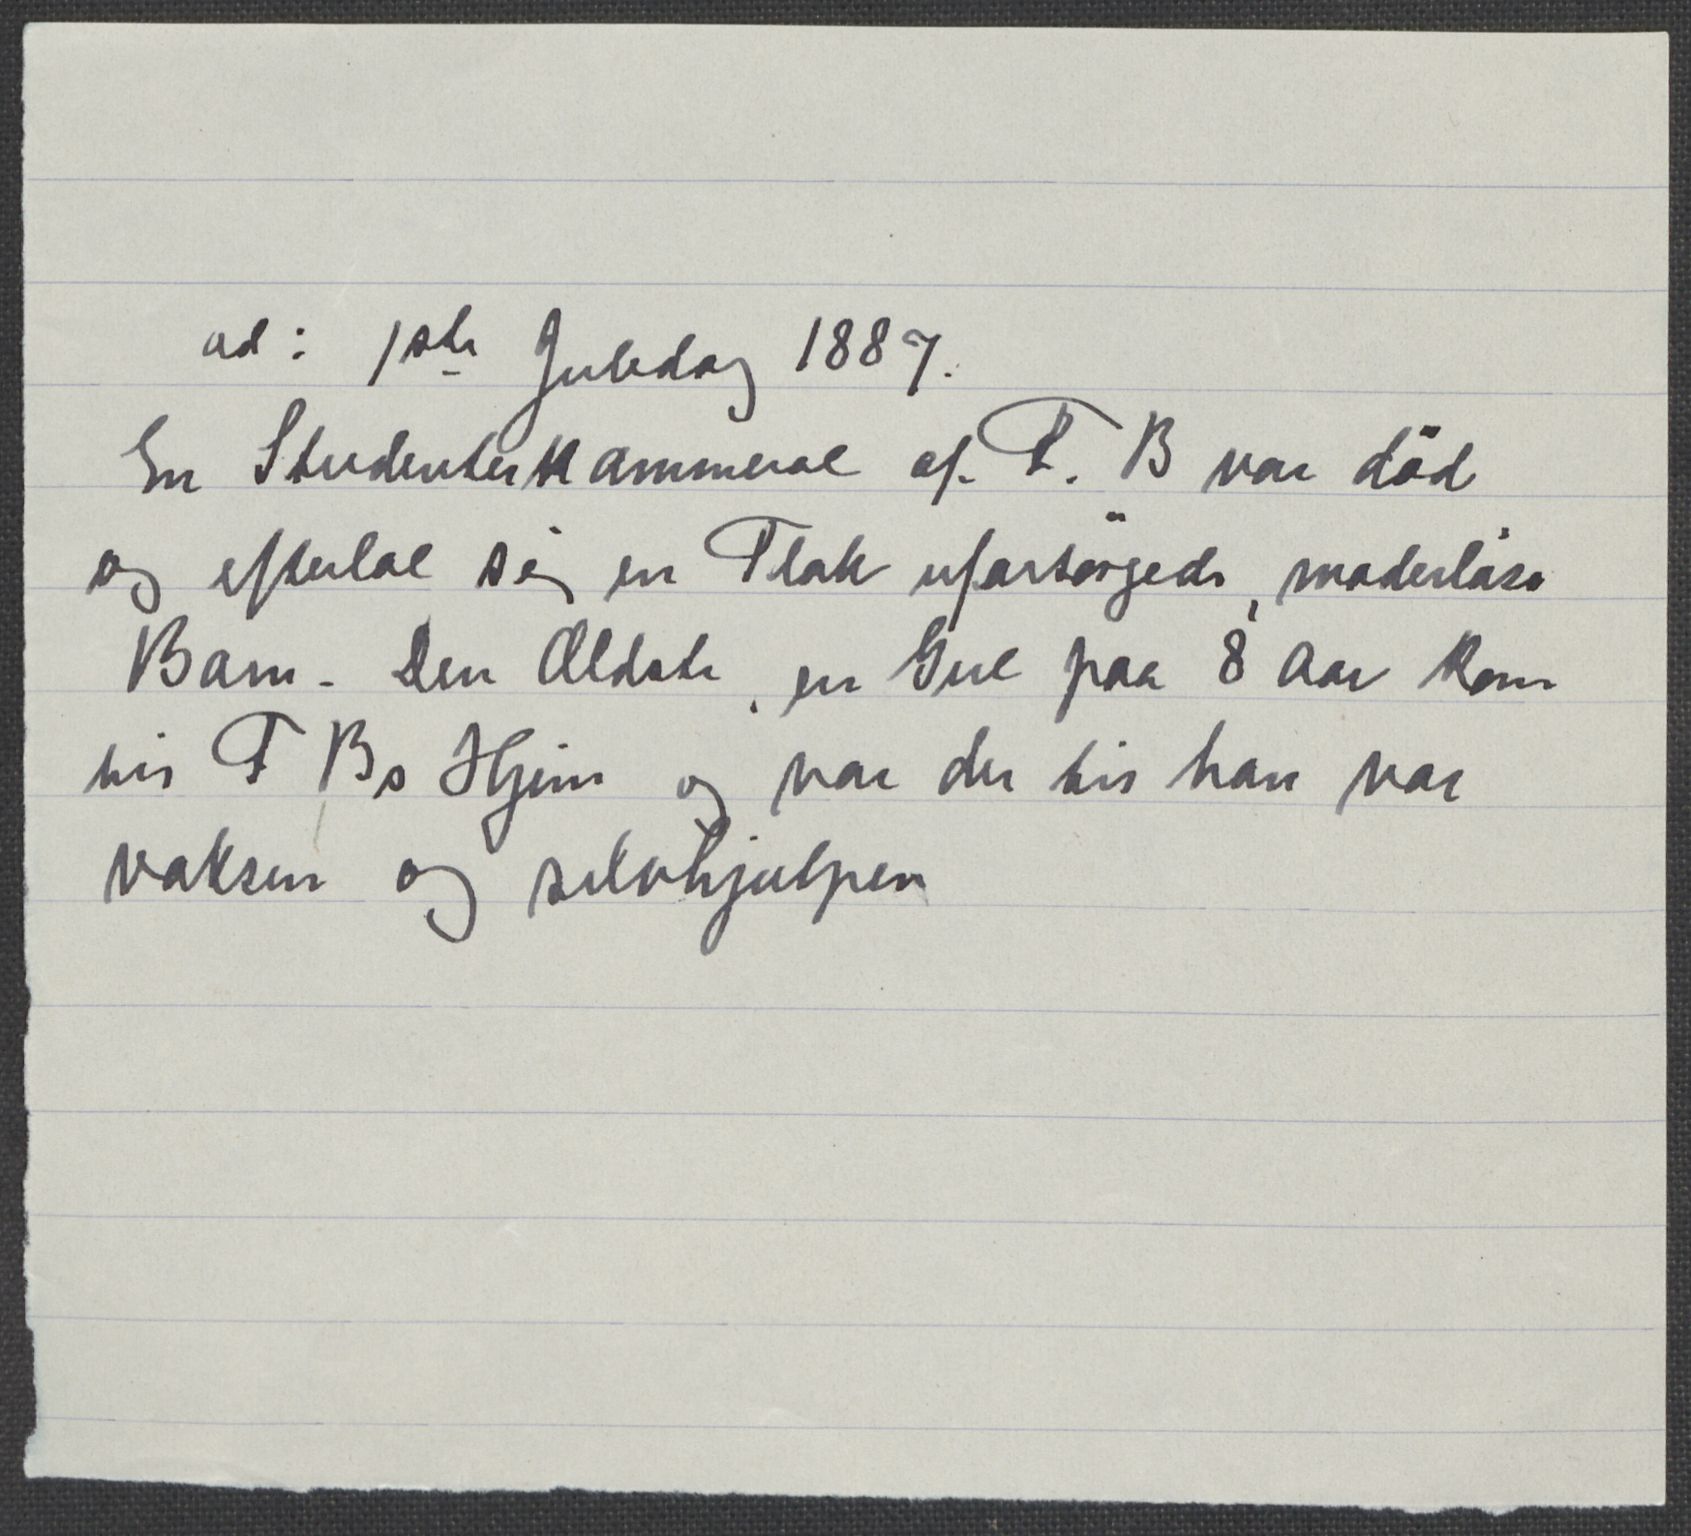 ad: 1ste Juledag 1887.
En Studenterkammerat af F. B var död
og efterlot sig en Flok uforsörgede, moderlöse
Barn. Den Ældste, en Gut paa 8 Aar kom
til F Bs Hjem og var der til han var
voksen og selvhjulpen